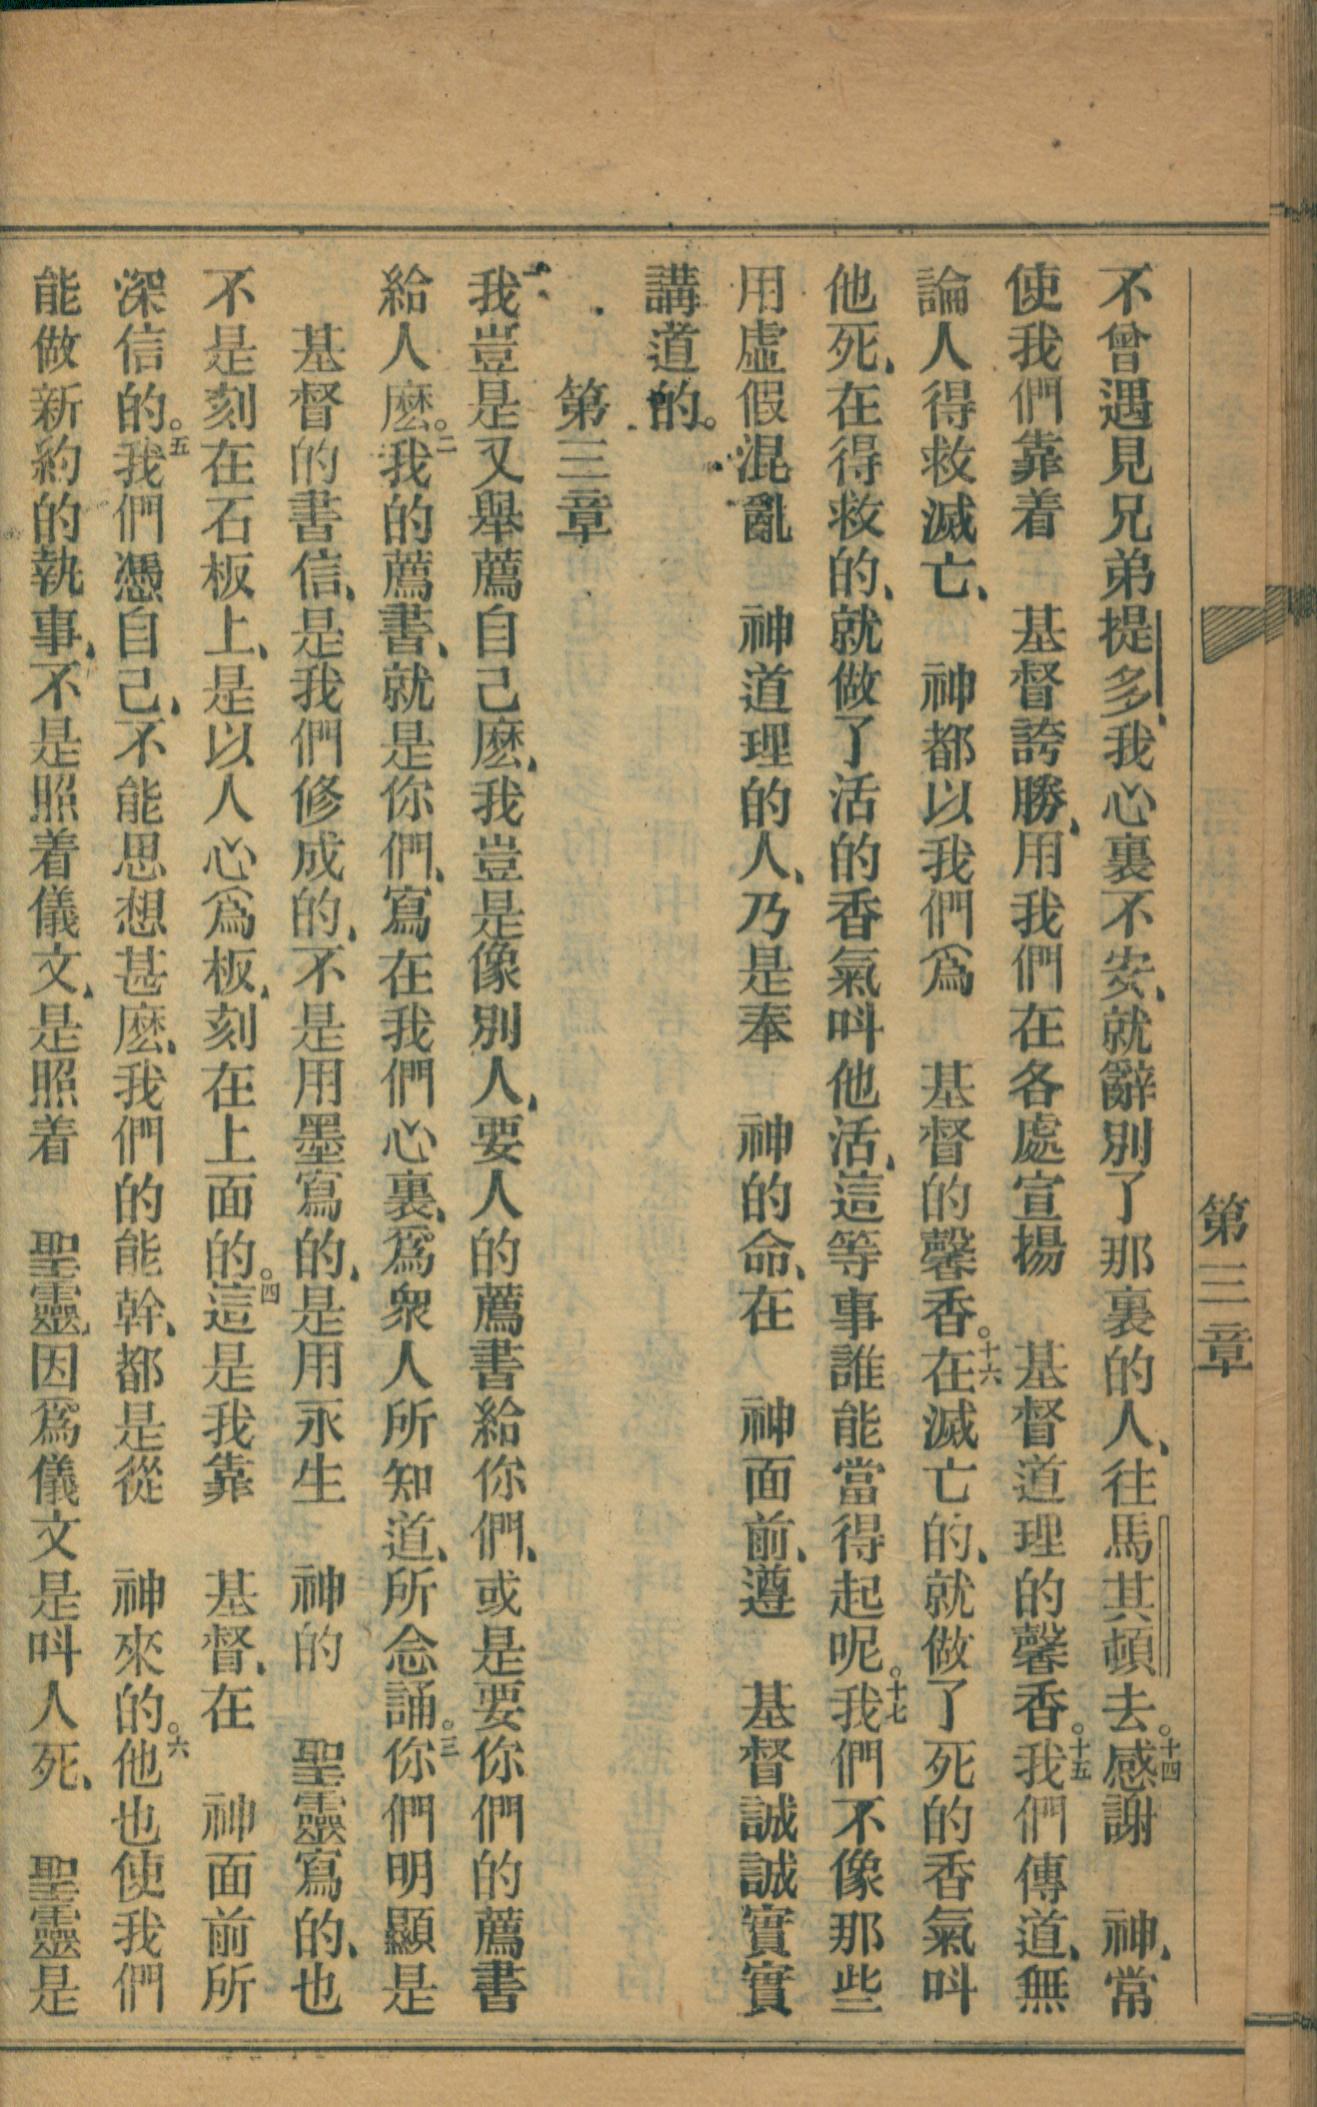 第三章
不曾遇見兄弟提多、我心裏不安、就辭別了那裏的人、往馬其頓去。十四感謝　神、常
使我們靠着　基督誇勝、用我們在各處宣揚　基督道理的馨香。十五我們傳道、無
論人得救滅亡、　神都以我們爲　基督的馨香。十六在滅亡的、就做了死的香氣叫
他死、在得救的、就做了活的香氣叫他活、這等事誰能當得起呢。十七我們不像那些
用虛假混亂　神道理的人、乃是奉　神的命、在　神面前、遵　基督誠誠實實
講道的。
第三章
一我豈是又舉薦自己麽、我豈是像別人、要人的薦書給你們、或是要你們的薦書
給人麽。二我的薦書、就是你們、寫在我們心裏、爲衆人所知道、所念誦。三你們明顯是
基督的書信、是我們修成的、不是用墨寫的、是用永生　神的　聖靈寫的、也
不是刻在石板上、是以人心爲板、刻在上面的。四這是我靠　基督、在　神面前所
深信的。五我們憑自己、不能思想甚麽、我們的能幹、都是從　神來的。六他也使我們
能做新約的執事、不是照着儀文、是照着　聖靈、因爲儀文是叫人死、　聖靈是